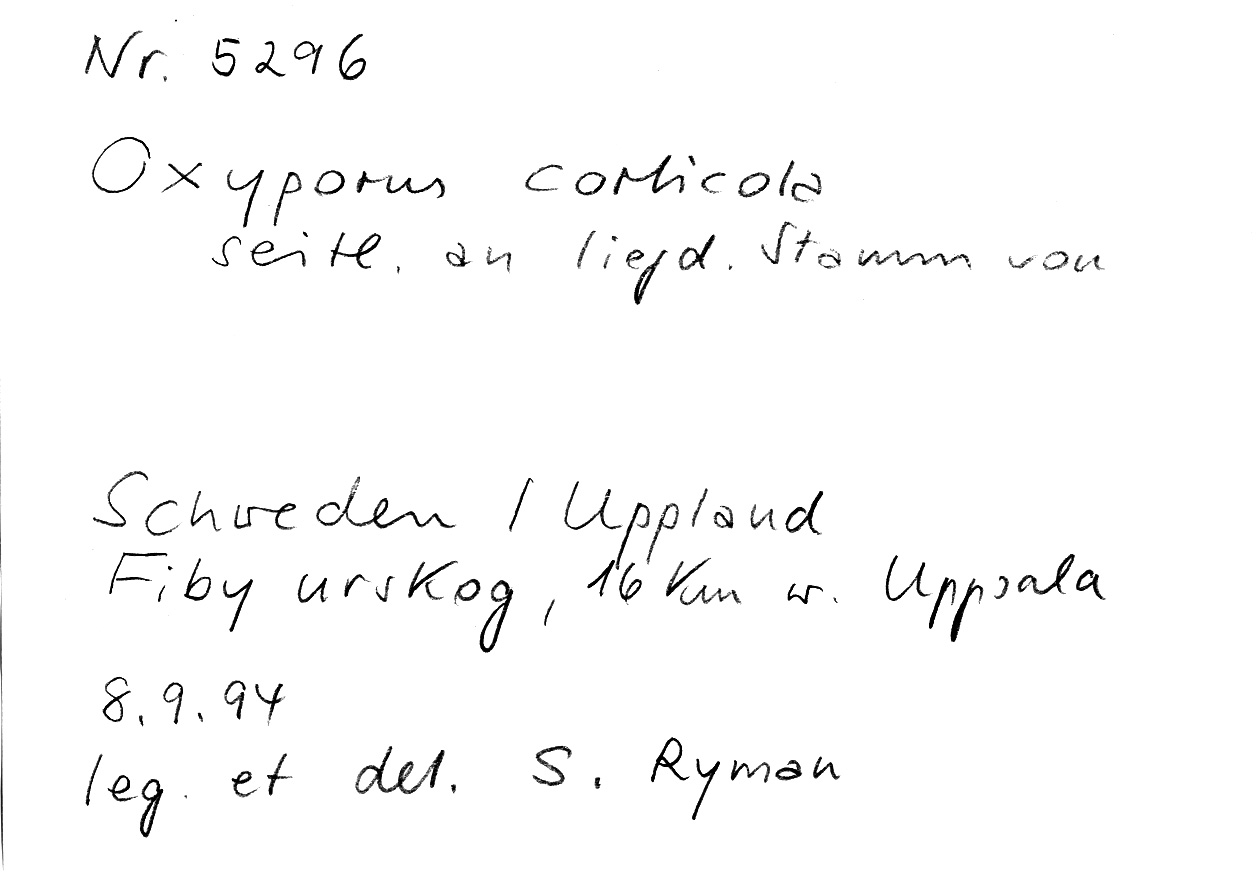 Nr. 5296
Oxyporus corticola
seitl. an liegd. Stamm von
Schweden / Uppland
Fiby urskog, 16 Km w. Uppsala
8.9.94
leg. et det. S. Ryman